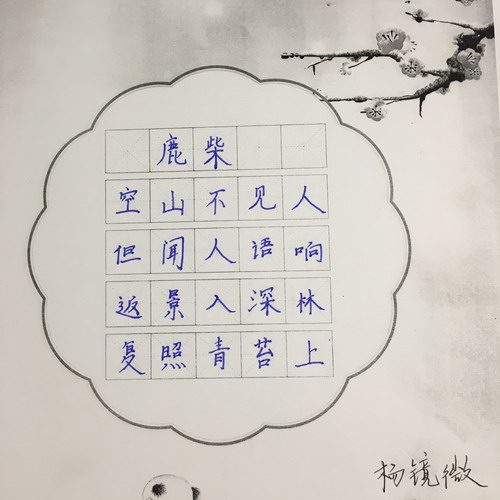 鹿柴
空山不见人
但闻人语响
返景入深林
复照青苔上
杨镜微